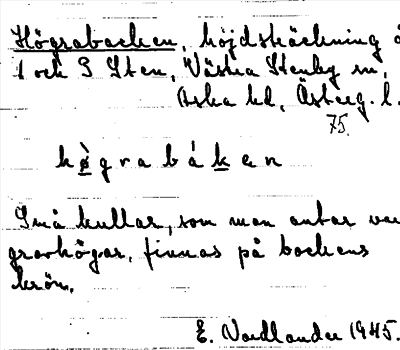 Högrabacken, höjdsträckning å
1 och 3 Sten, Västra Stenby sn,
Aska hd, Österg. l.
75.
hø̀grabáken
Små kullar, som man antar va
gravhögar, finnas på backens
krön.
E. Nordlander 1945.